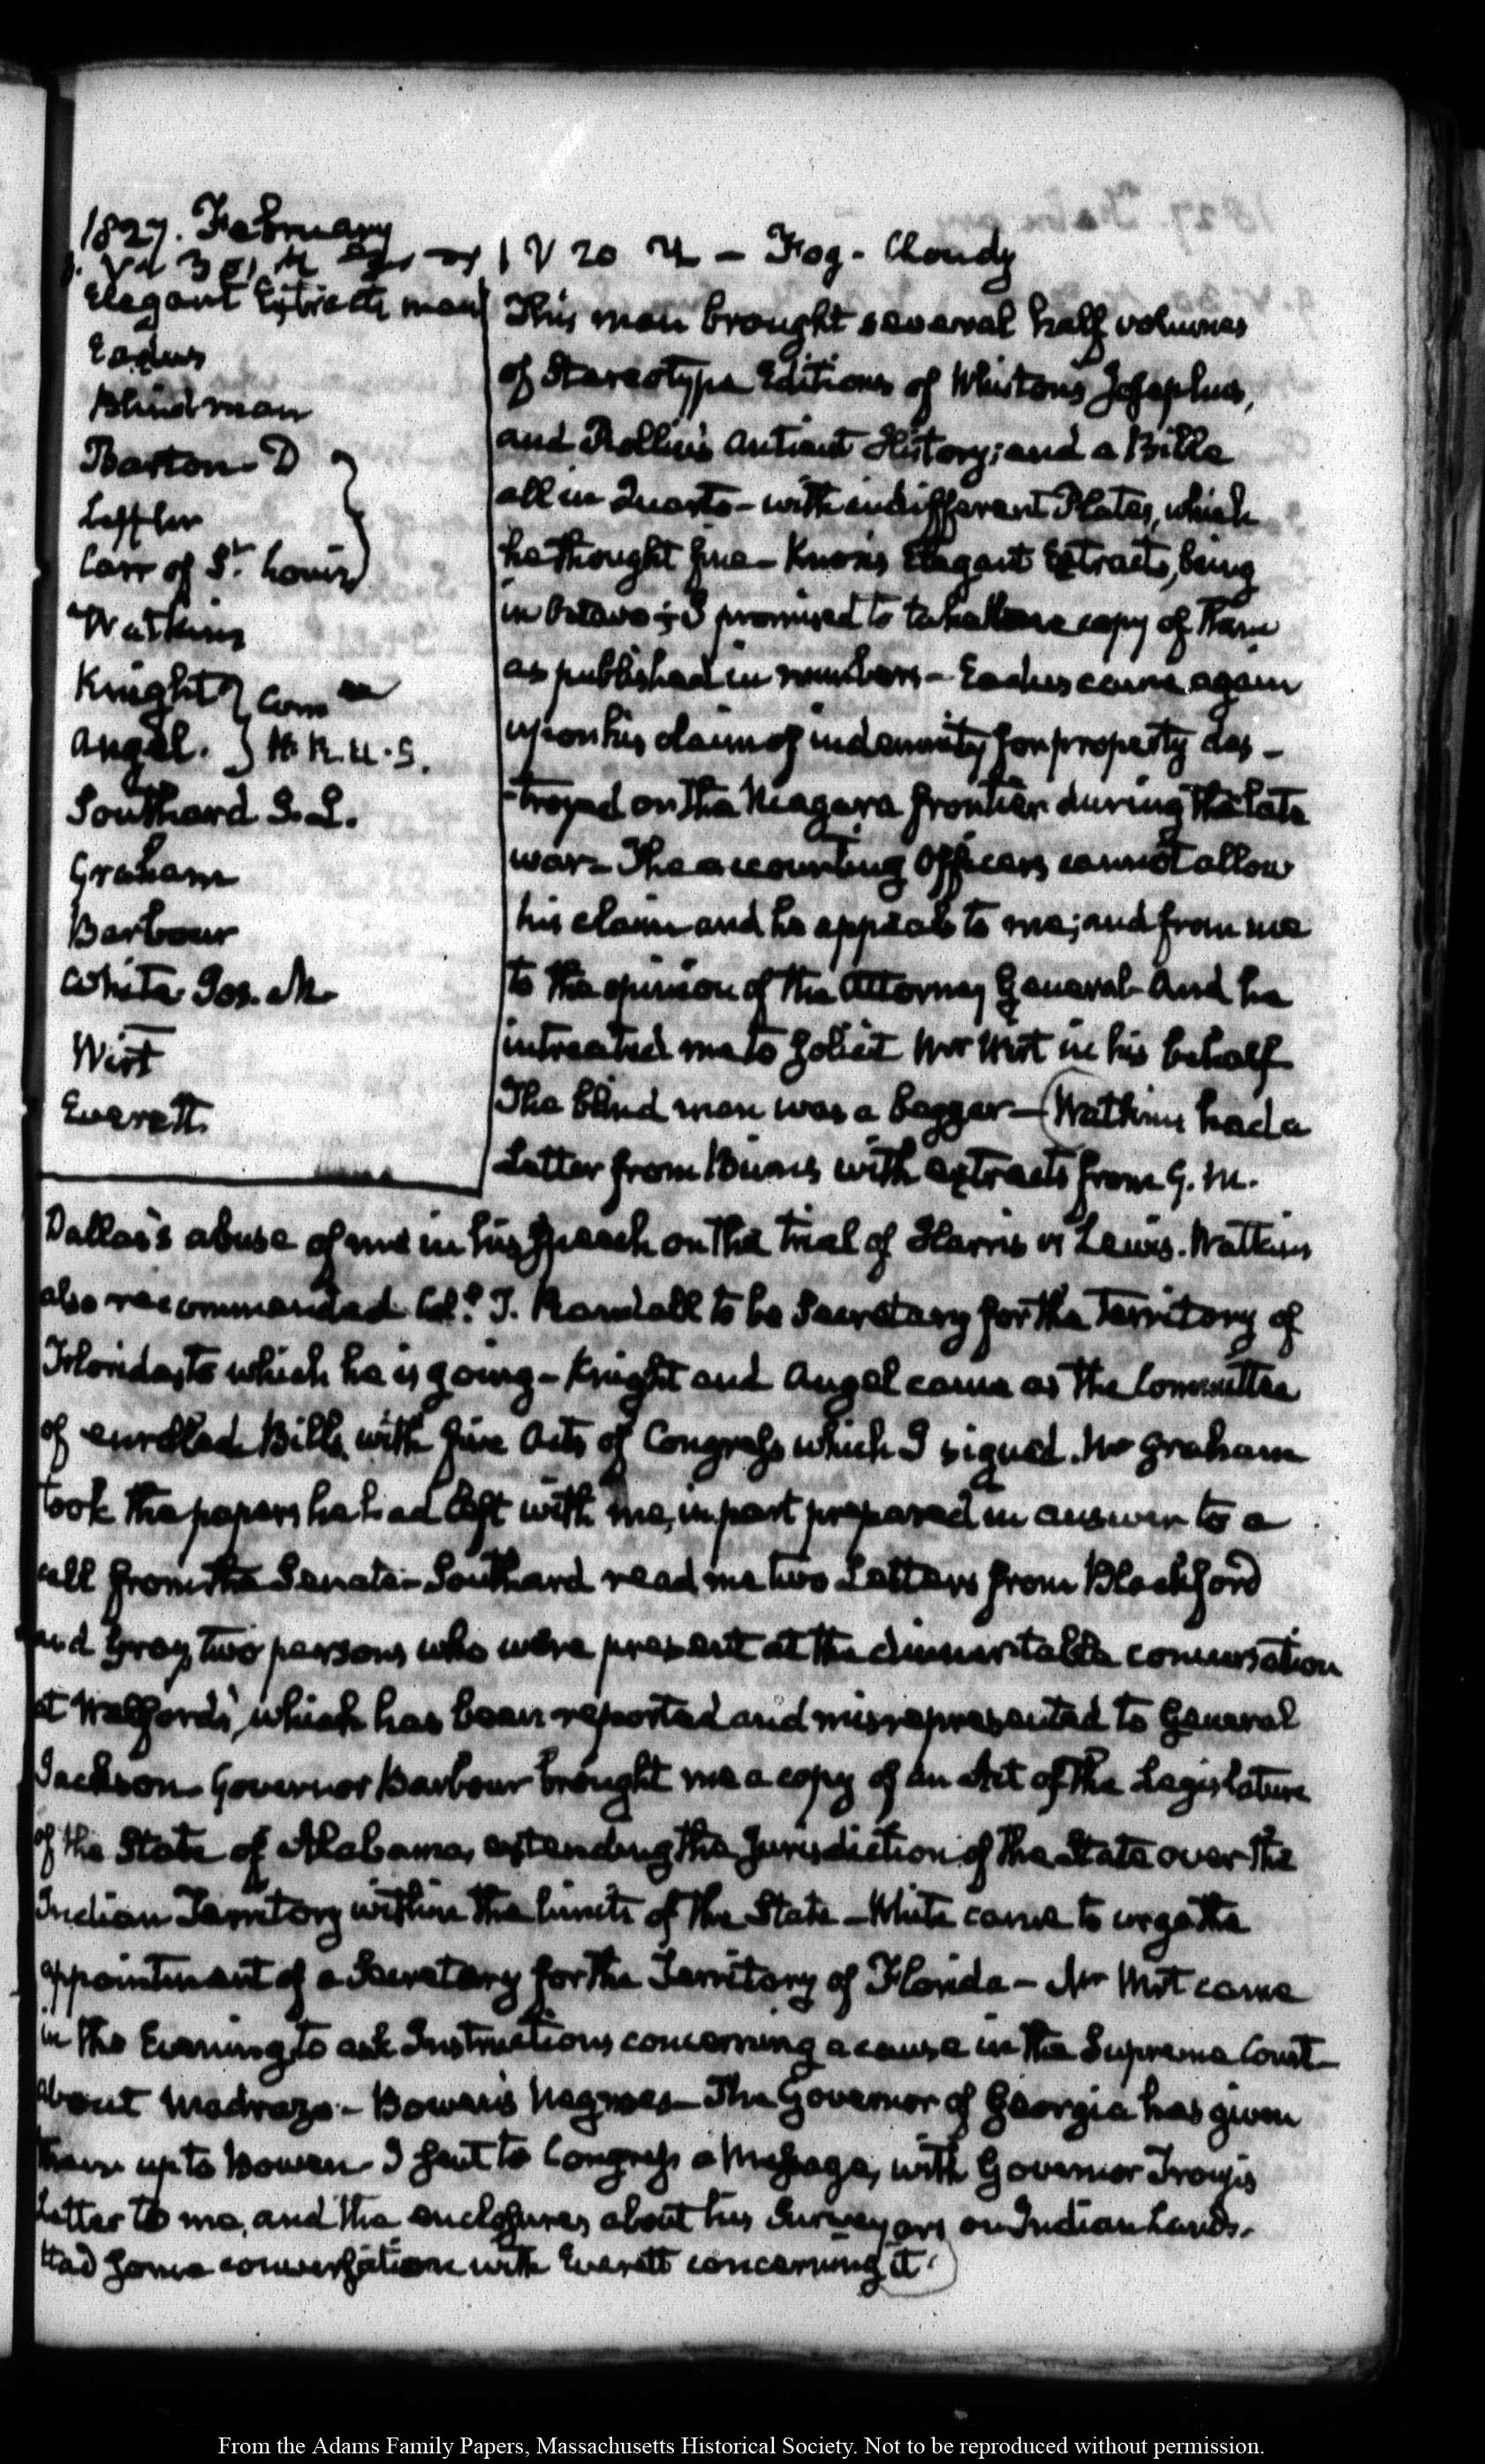 1827. February
V 20 — Fog - Cloudy
Elegant Extracts man
Eadus
Blind man
Barton. D
Leffler
Carr of St. Louis
Watkins
Knight } Com
Angel. } H. R. U. S.
Southard S. L.
Graham
Barbour
White Jos. M.
Wirt
Everett.
This man brought several half volumes
of Stereotype Editions of Whiston's Josephus,
and Rollin's Antient History; and a Bible
all in Quarto - with indifferent Plates, which
he thought fine - Knox's Elegant Extracts, being
in Octavo; I promised to take one copy of them
as published in numbers - Eadus came again
upon his claim of indemnity for property des-
-troyed on the Niagara frontier during the late
war - The accounting Officers cannot allow
his claim and he appeals to me; and from me
to the opinion of the Attorney General - And he
intreated me to solicit Mr Wirt in his behalf
The blind man was a beggar - (Watkins had a
Letter from Binns with extracts from G. M.
Dallas's abuse of me in his speech on the trial of Harris vs Lewis. Watkins
also recommended Col. T. Randall to be Secretary for the Territory of
Florida, to which he is going - Knight and Angel came as the Committee
of enrolled Bills, with five Acts of Congress which I signed. Mr Graham
took the papers he had left with me, in part prepared in answer to a
call from the Senate - Southard read me two Letters from Blackford
and Gray, two persons who were present at the dinner table conversation
at Welford's, which has been reported and misrepresented to General
Jackson - Governor Barbour brought me a copy of an Act of the Legislature
of the State of Alabama, extending the Jurisdiction of the State over the
Indian Territory within the limits of the State - White came to urge the
appointment of a Secretary for the Territory of Florida - Mr Wirt came
in the Evening, to ask Instructions concerning a cause in the Supreme Court -
about Madrazo - Bowen's Negroes - The Governor of Georgia has given
them up to Bowen - I sent to Congress a Message, with Governor Troup's
Letter to me, and the enclosures about his Surveyors on Indian Lands.
Had some conversation with Everett concerning it.)
From the Adams Family Papers, Massachusetts Historical Society. Not to be reproduced without permission.